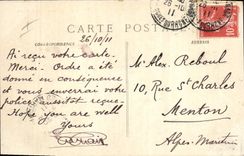 CARTE POSTALE
CORRESPONDANCE
ADRESSE
26/10/11
Ai reçu votre carte.
Merci. Ordre a été
donné en conséquence
et vous enverrai votre
police aussitôt reçue.
Hope you are well
Yours
Mr Alex. Reboul
10, Rue St Charles
Menton
Alpes-Maritimes